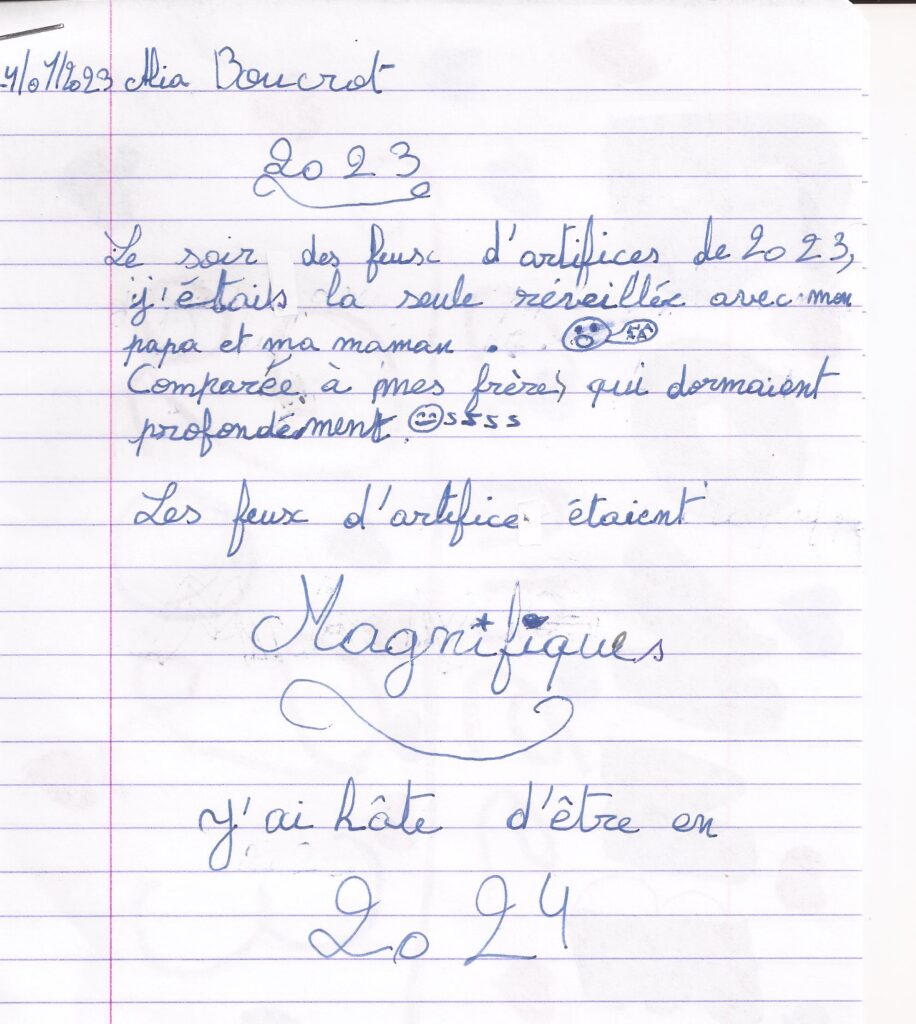 4/01/2023 Alia Boucrot
2023
Le soir des feux d'artifices de 2023,
j'étais la seule réveillée avec mon
papa et ma maman.
Comparée à mes frères qui dormaient
profondément. ssss
Les feux d'artifice étaient
Magnifiques
J'ai hâte d'être en
2024